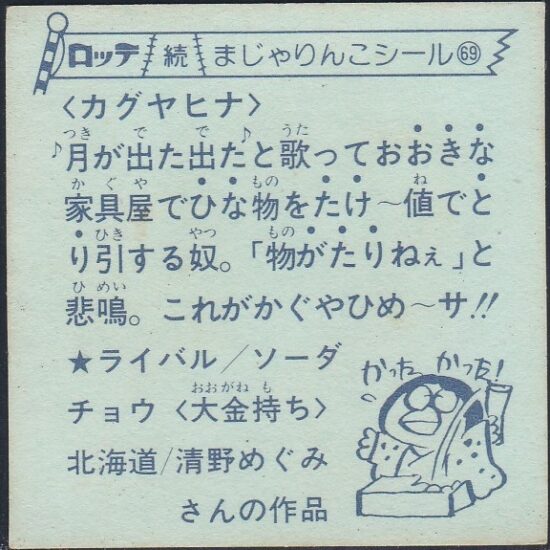 ロッテ 続 まじゃりんこシール69
〈カグヤヒナ〉
♪月が出た出た♪と歌っておおきな
家具屋でひな物をたけ〜値でと
り引する奴。「物がたりねぇ」と
悲鳴。これがかぐやひめ〜サ!!
★ライバル/ソーダ
チョウ〈大金持ち〉
北海道/清野めぐみ
さんの作品
かった かった!